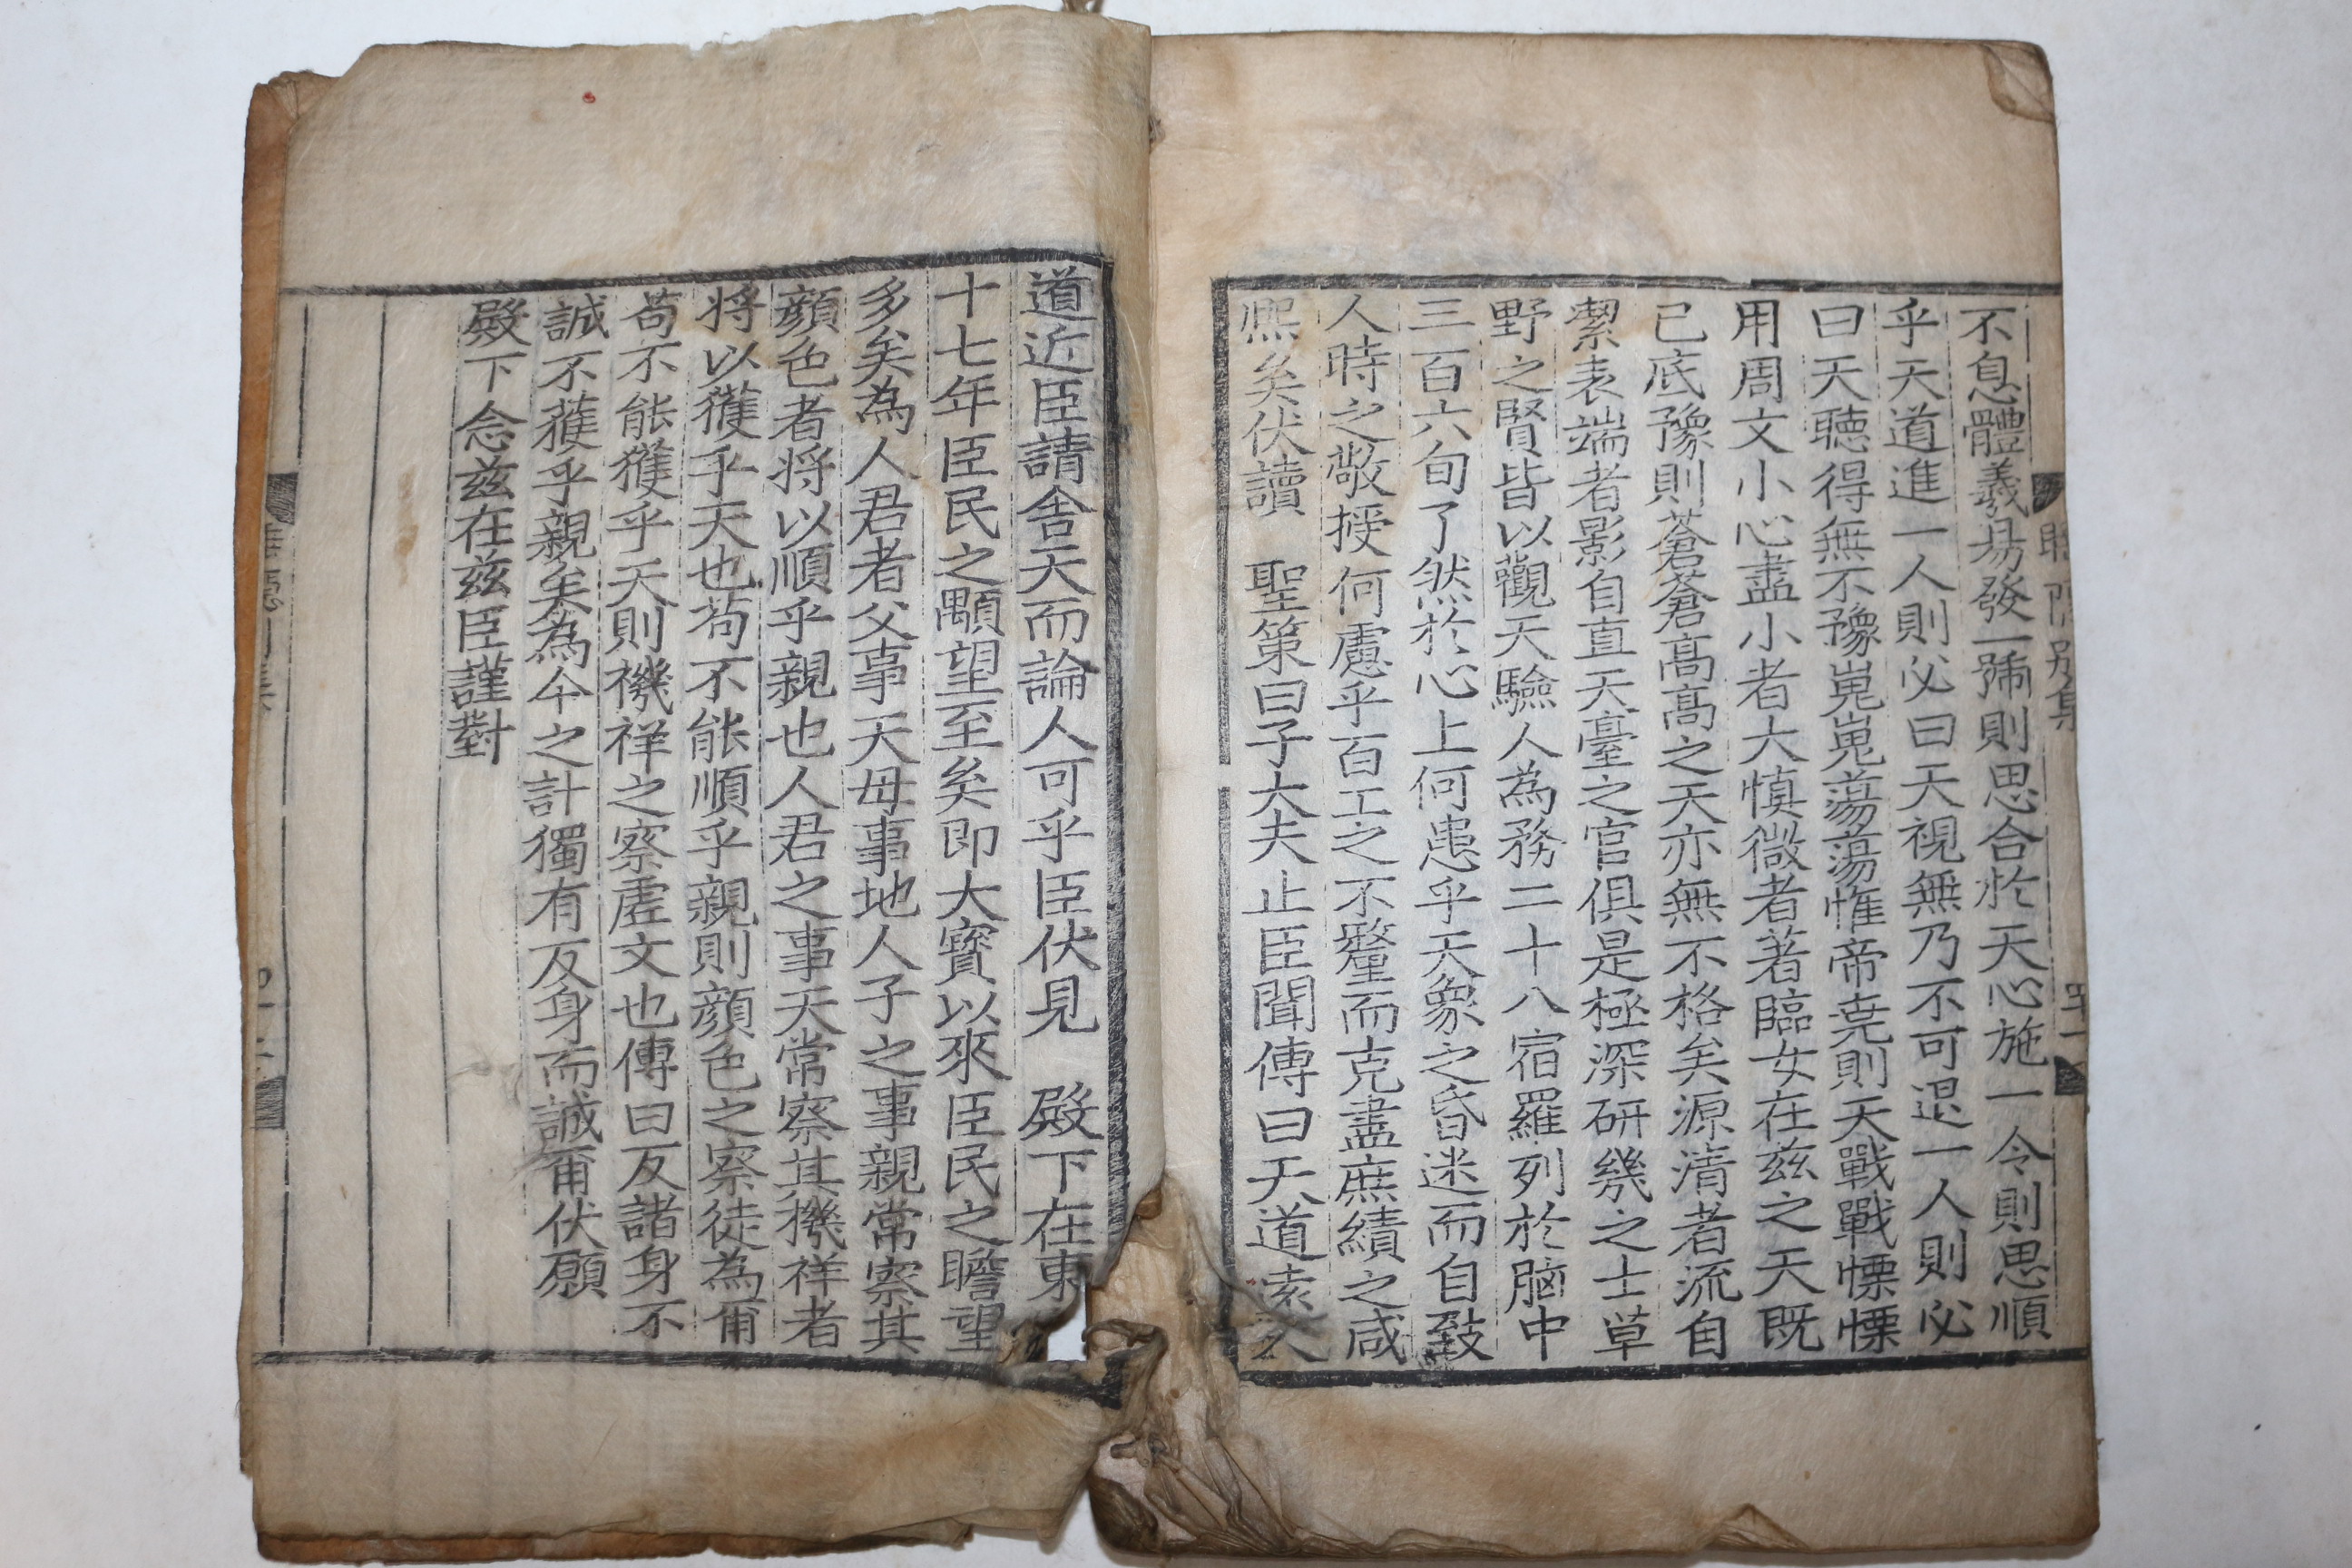 不息體羲易發一號則思合於天心施一令則思順
乎天道進一人則必曰天視無乃不可退一人則必
曰天聽得無不豫嵬嵬蕩蕩惟帝堯則天戰戰慄慄
用周文小心盡小者大慎微者著臨女在玆之天旣
已底豫則蒼蒼高高之天亦無不格矣源清者流自
潔表端者影自直天臺之官俱是極深硏幾之士草
野之賢皆以觀天驗人為務二十八宿羅列於腦中
三百六旬了然於心上何患乎天象之昏迷而自致
人時之敬授何慮乎百工之不釐而克盡庶績之咸
熙矣伏讀 聖策曰子大夫止臣聞傳曰天道遠人
道近臣請舍天而論人可乎臣伏見 殿下在東
十七年臣民之顒望至矣即大寶以來臣民之瞻望
多矣為人君者父事天母事地人子之事親常察其
顔色者將以順乎親也人君之事天常察其禨祥者
將以獲乎天也苟不能順乎親則顔色之察徒為爾
苟不能獲乎天則禨祥之察虛文也傳曰反諸身不
誠不獲乎親矣為今之計獨有反身而誠爾伏願
殿下念玆在玆臣謹對